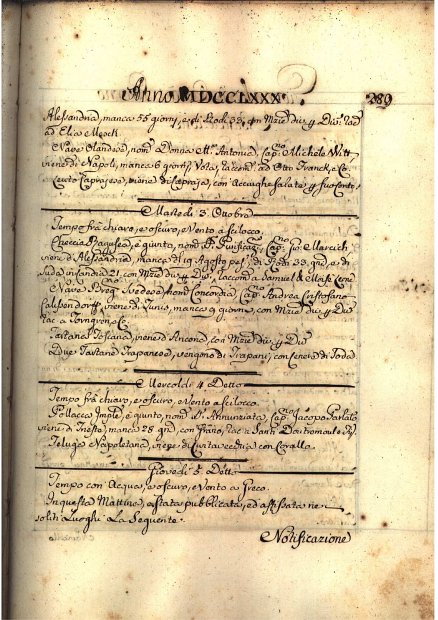 Anno MDCCLXXX 289
Alessandria, manca 55 giorni, e di Rodi 33, con Merci div. p Div. Rac
ad Elia Morck.
Nave Olandese, nom. Donna M. Antonia, Cap.no Michele Witt
viene di Napoli, manca 6 giorni, Vota, raccom. ad Otto Franck, e C.
Leuto Caprajese, viene di Capraja, con Acciughe salate p suo conto.
Martedì 3 Ottobre
Tempo frà chiaro, e oscuro, e Vento a Scilocco.
Checcia Ragusea, è giunta, nom. P. Purificaz. Cap.no Mercich
viene di Alessandria, manca di 19 Agosto pas. di Rodi 33. gni, e di
Suda in Candia 21. con Merci div. p Div. raccom. a Samuel & Moisè
Nave Svedese, nom. Concordia, Cap.no Andrea Cristofano
viene di Tunis, manca 9 giorni, con Merci div. p Div
Rac. a
Tartana Toscana, viene d'Ancona, con Merci div. p Div
Due Tartane Trapanesi, vengono di Trapani, con Cenere di Soda
Mercoledì 4 Detto
Tempo frà chiaro, e oscuro, e Vento a Scilocco.
Pollacca Imple, è giunta, nom. S. Annunziata, Cap.no Jacopo
viene di Trieste, manca 28 gni, con Grano, Rac. a
Feluga Napoletana, viene di Civitavecchia con Cavallo.
Giovedì 5 Detto
Tempo con Acqua, e oscuro, e Vento a Greco.
In questa Mattina, è stata pubblicata, ed affissata ne
soliti Luoghi La Seguente.
Notificazione